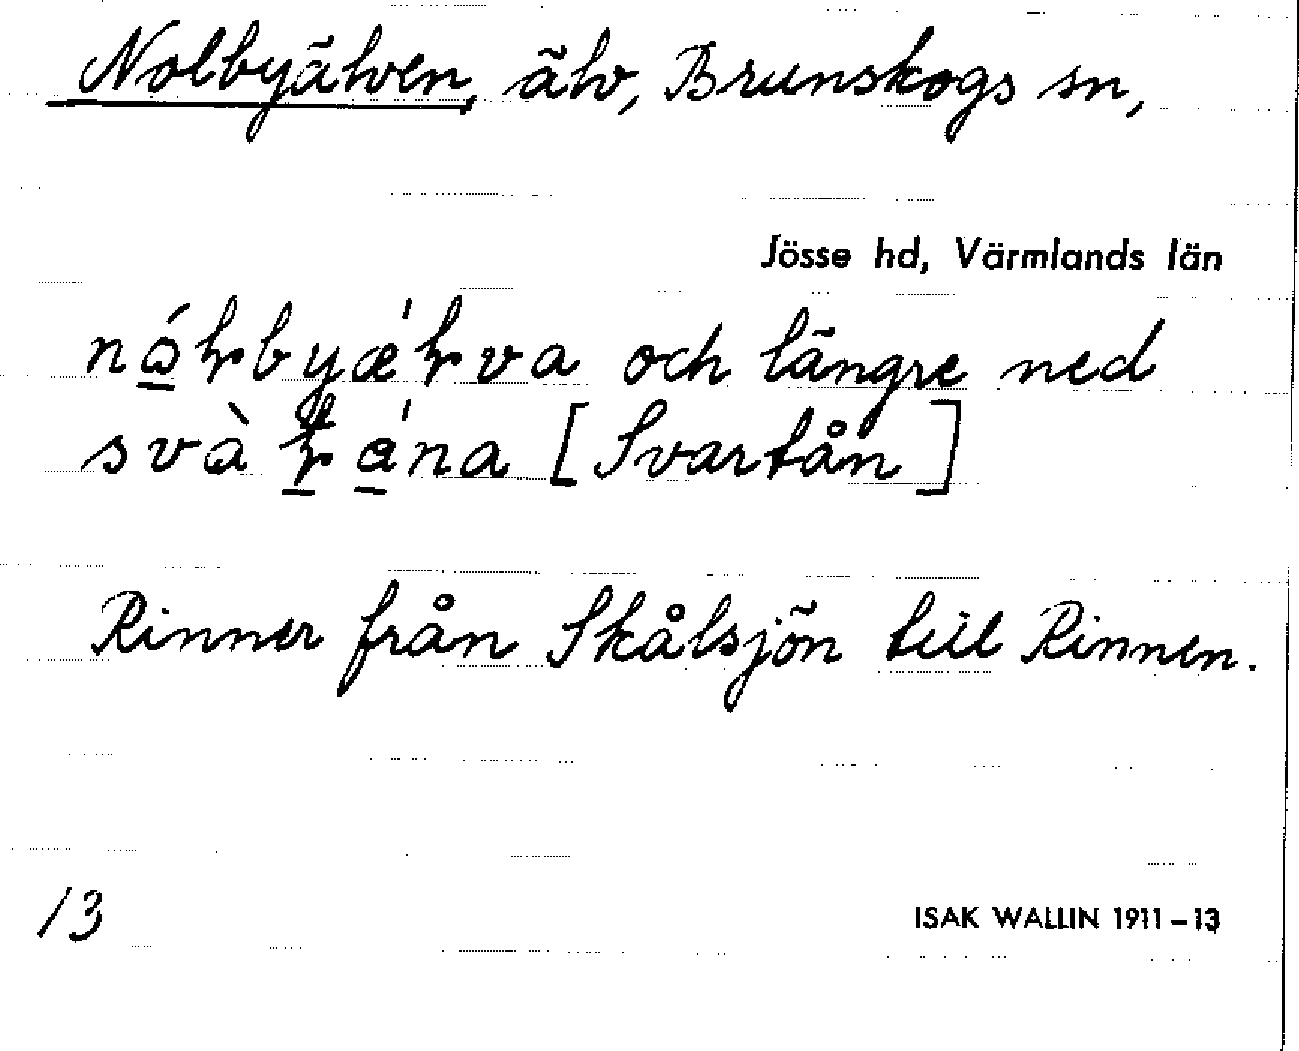 Nolbyälven, älv, Brunskogs sn,
Jösse hd, Värmlands län
och längre ned
[Svartån]
Rinner från Skålsjön till Rinnen.
13
ISAK WALLIN 1911–13